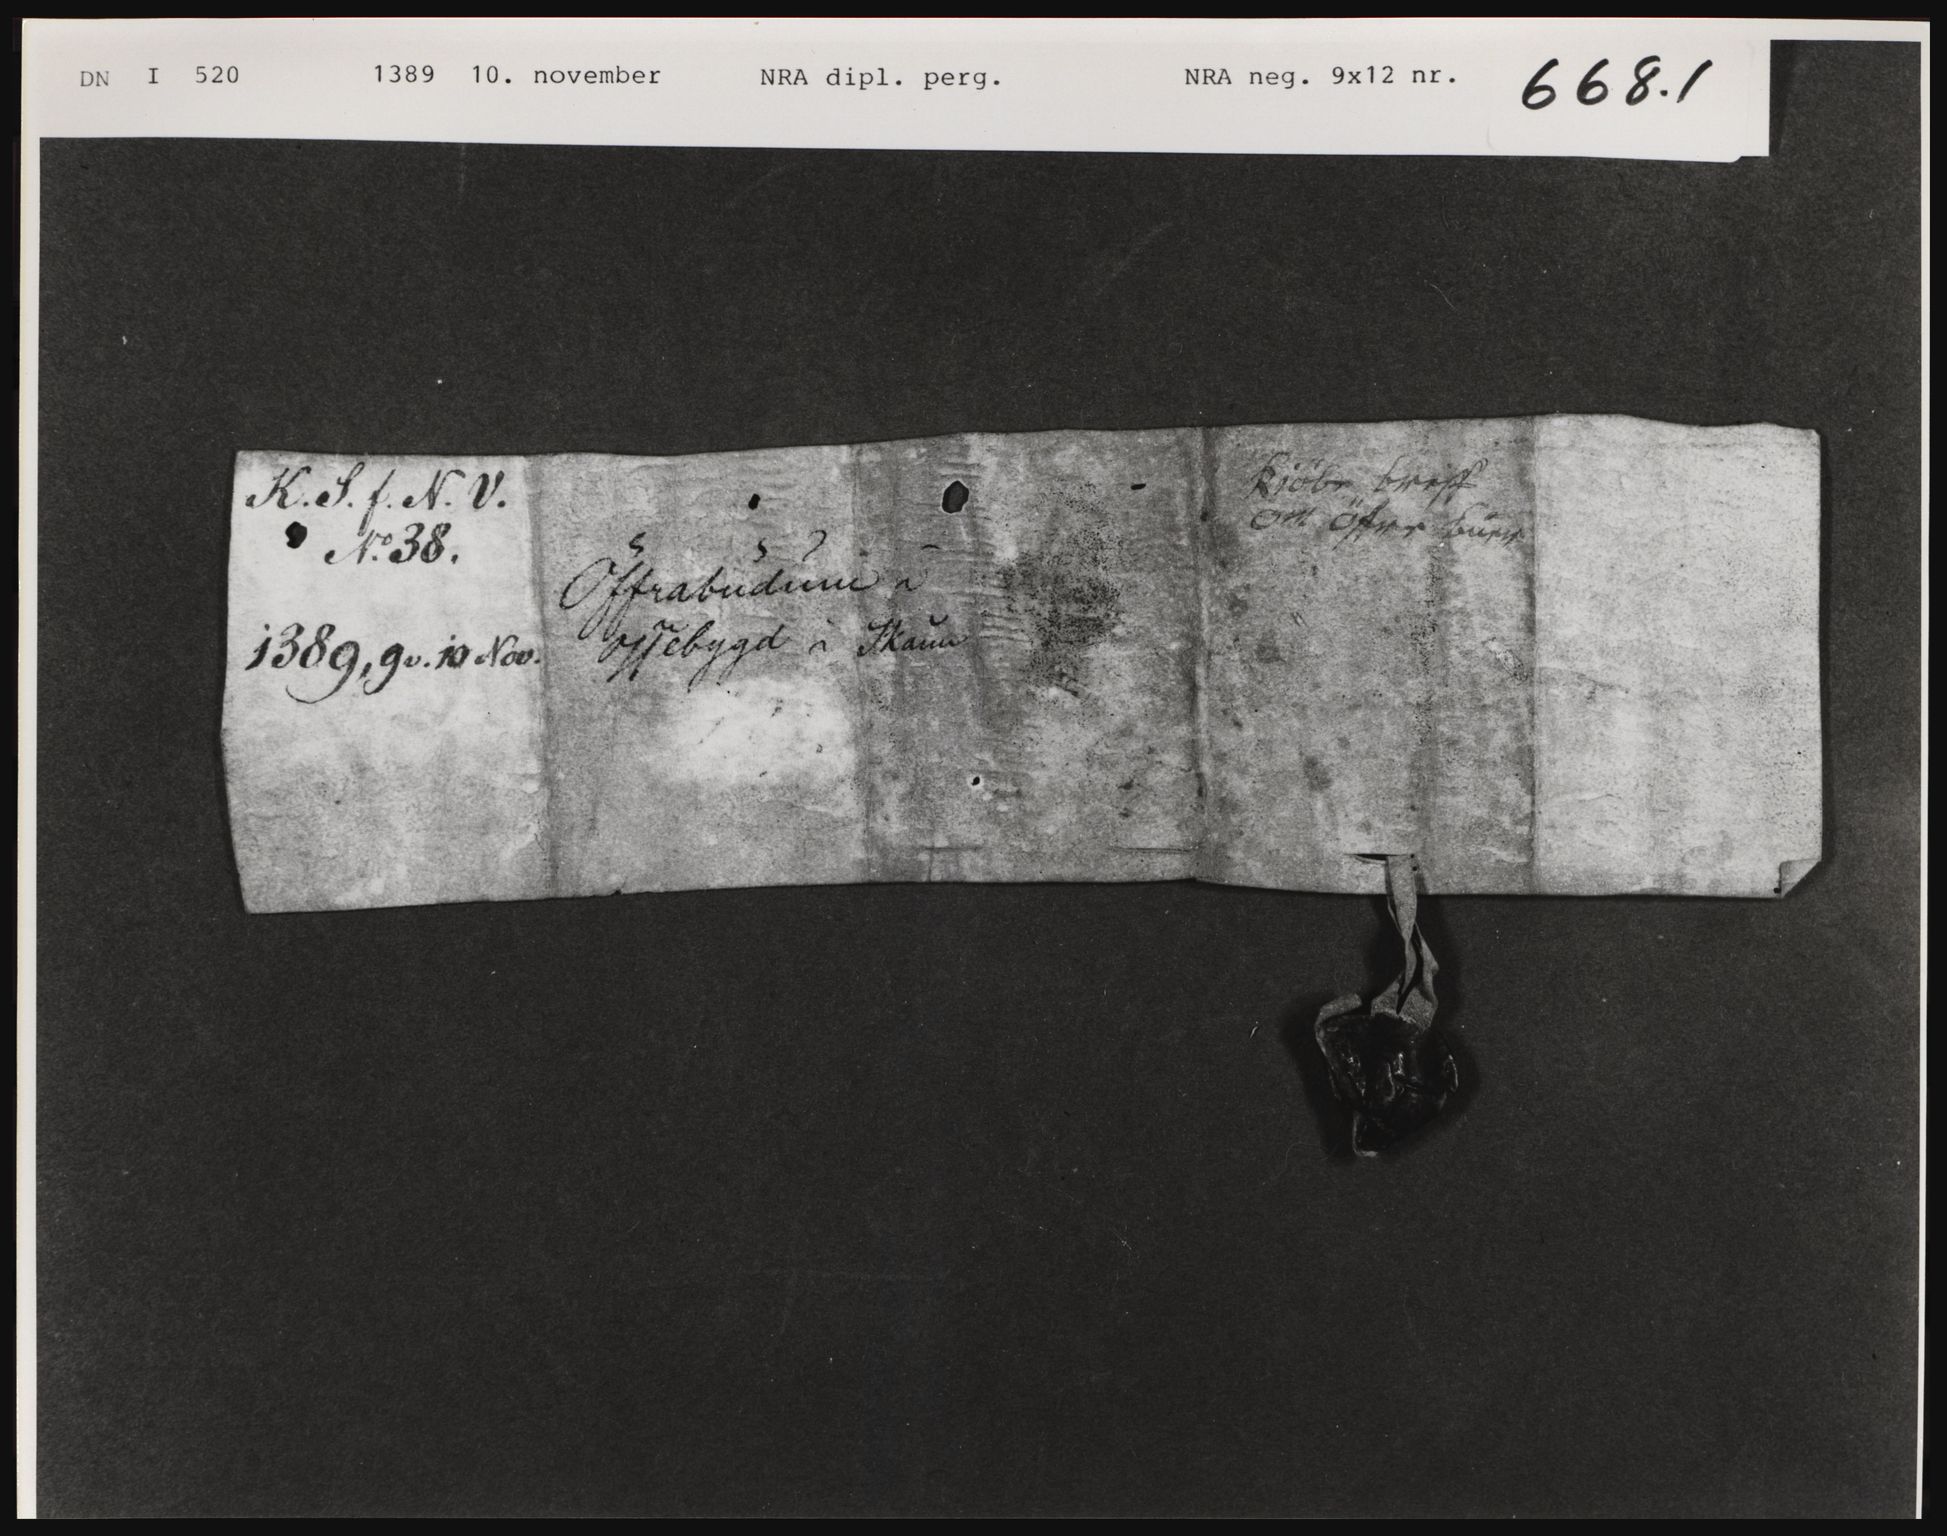 DN I 520 1389 10. november NRA dipl. perg. NRA neg. 9x12 nr. 668.1
K. S. f. N. V.
No 38.
1389, gv. 10 Nov.
Offrabudum i
bygd i Skaun
Kiöbe breff
om öffre